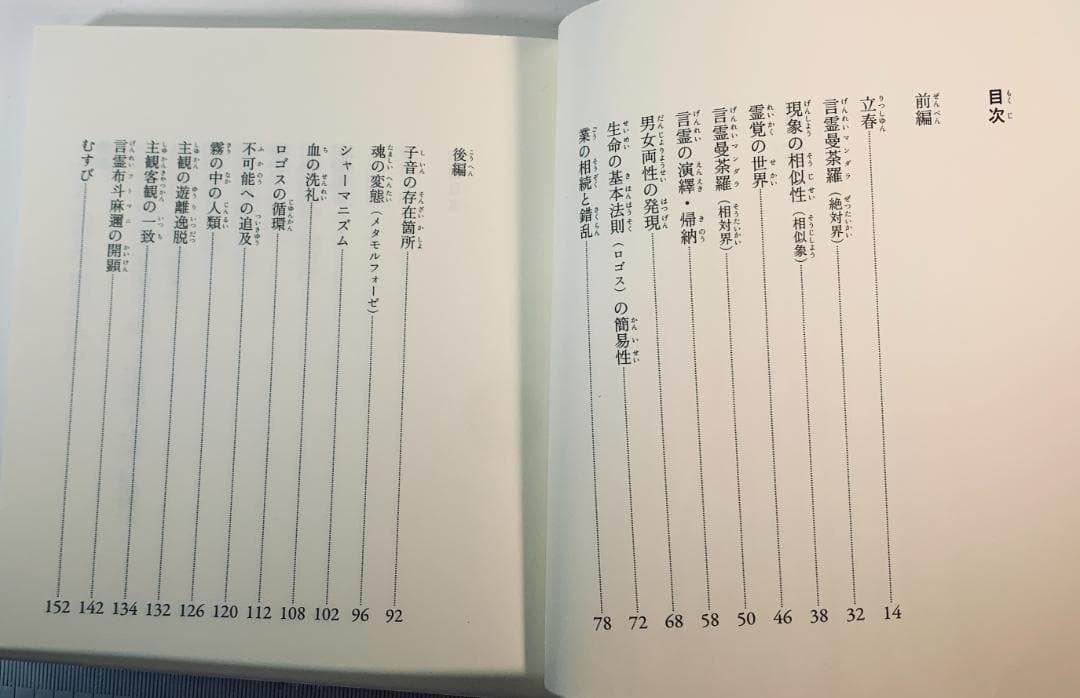 目次
前編
立春 14
言霊曼荼羅（絶対界） 32
現象の相似性（相似象） 38
霊覚の世界 46
言霊曼荼羅（相対界） 50
言霊の演繹・帰納 58
男女両性の発現 68
生命の基本法則（ロゴス）の簡易性 72
業の相続と錯乱 78
後編
子音の存在箇所 92
魂の変態（メタモルフォーゼ） 96
シャーマニズム 102
血の洗礼 108
ロゴスの循環 112
不可能への追及 120
霧の中の人類 126
主観の遊離逸脱 132
主観客観の一致 134
言霊布斗麻邇の開顕 142
むすび 152